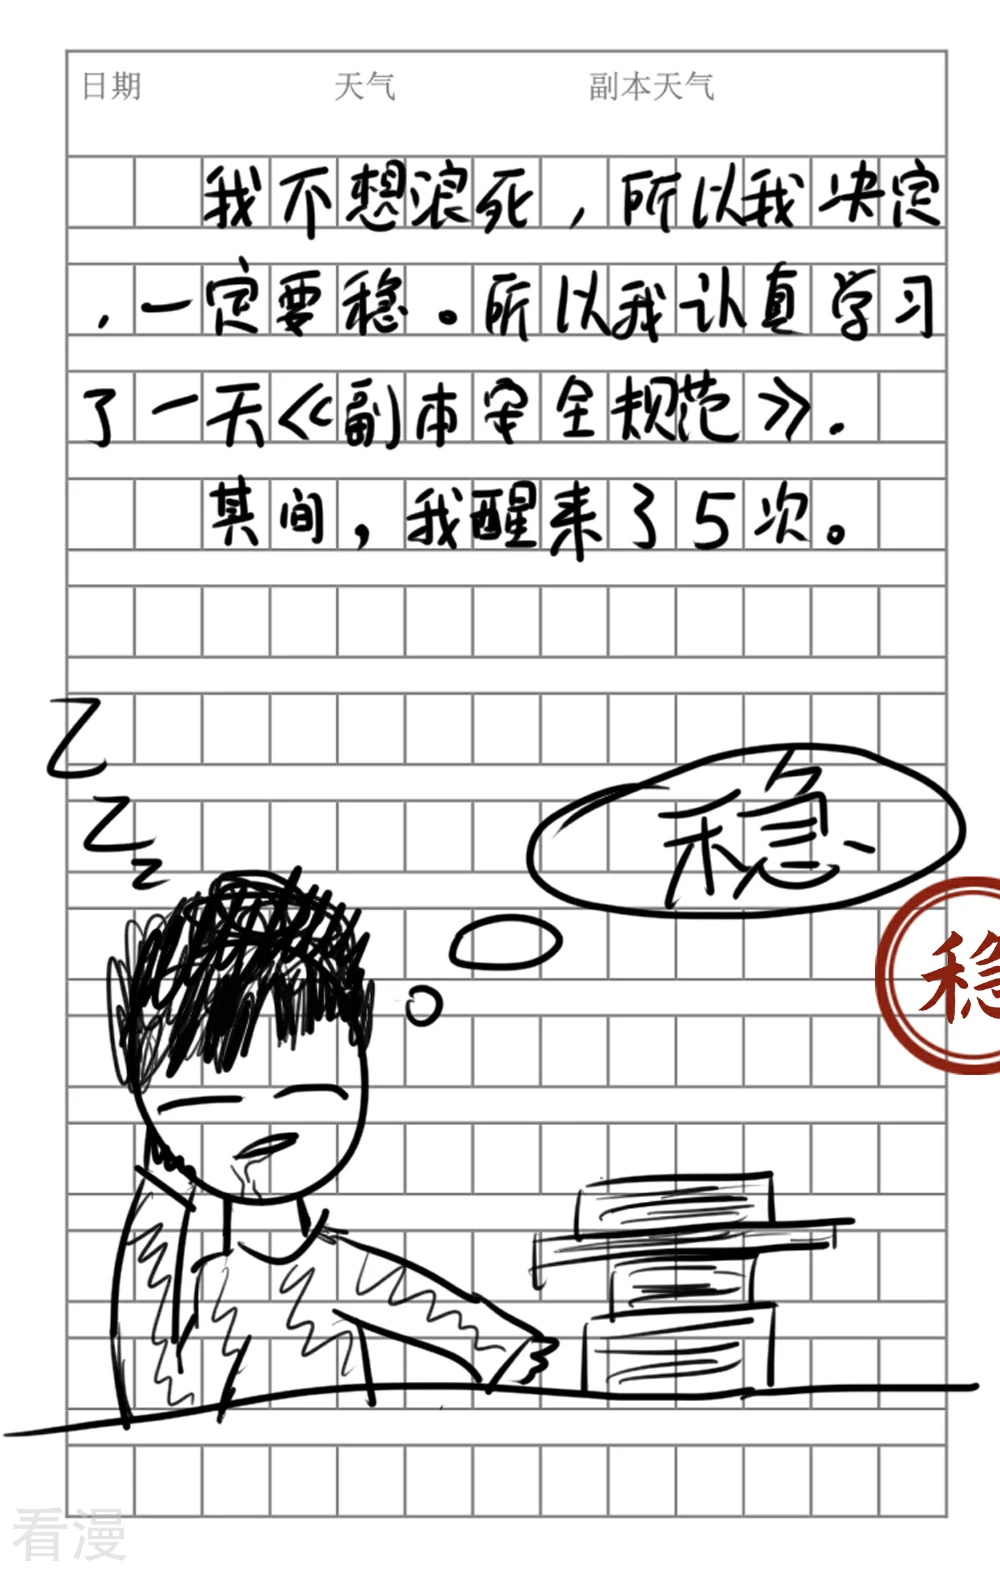 日期 天气 副本天气
我不想浪死，所以我决定
，一定要稳。所以我认真学习
了一天《副本安全规范》.
其间，我醒来了5次。
Z
Z
Z
稳
稳
看漫